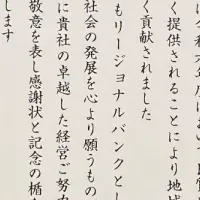 く提供されることにより地域
く貢献されました
もリージョナルバンクとし
社会の発展を心より願うもの
に貴社の卓越した経営ご努力
敬意を表し感謝状と記念の楯
します